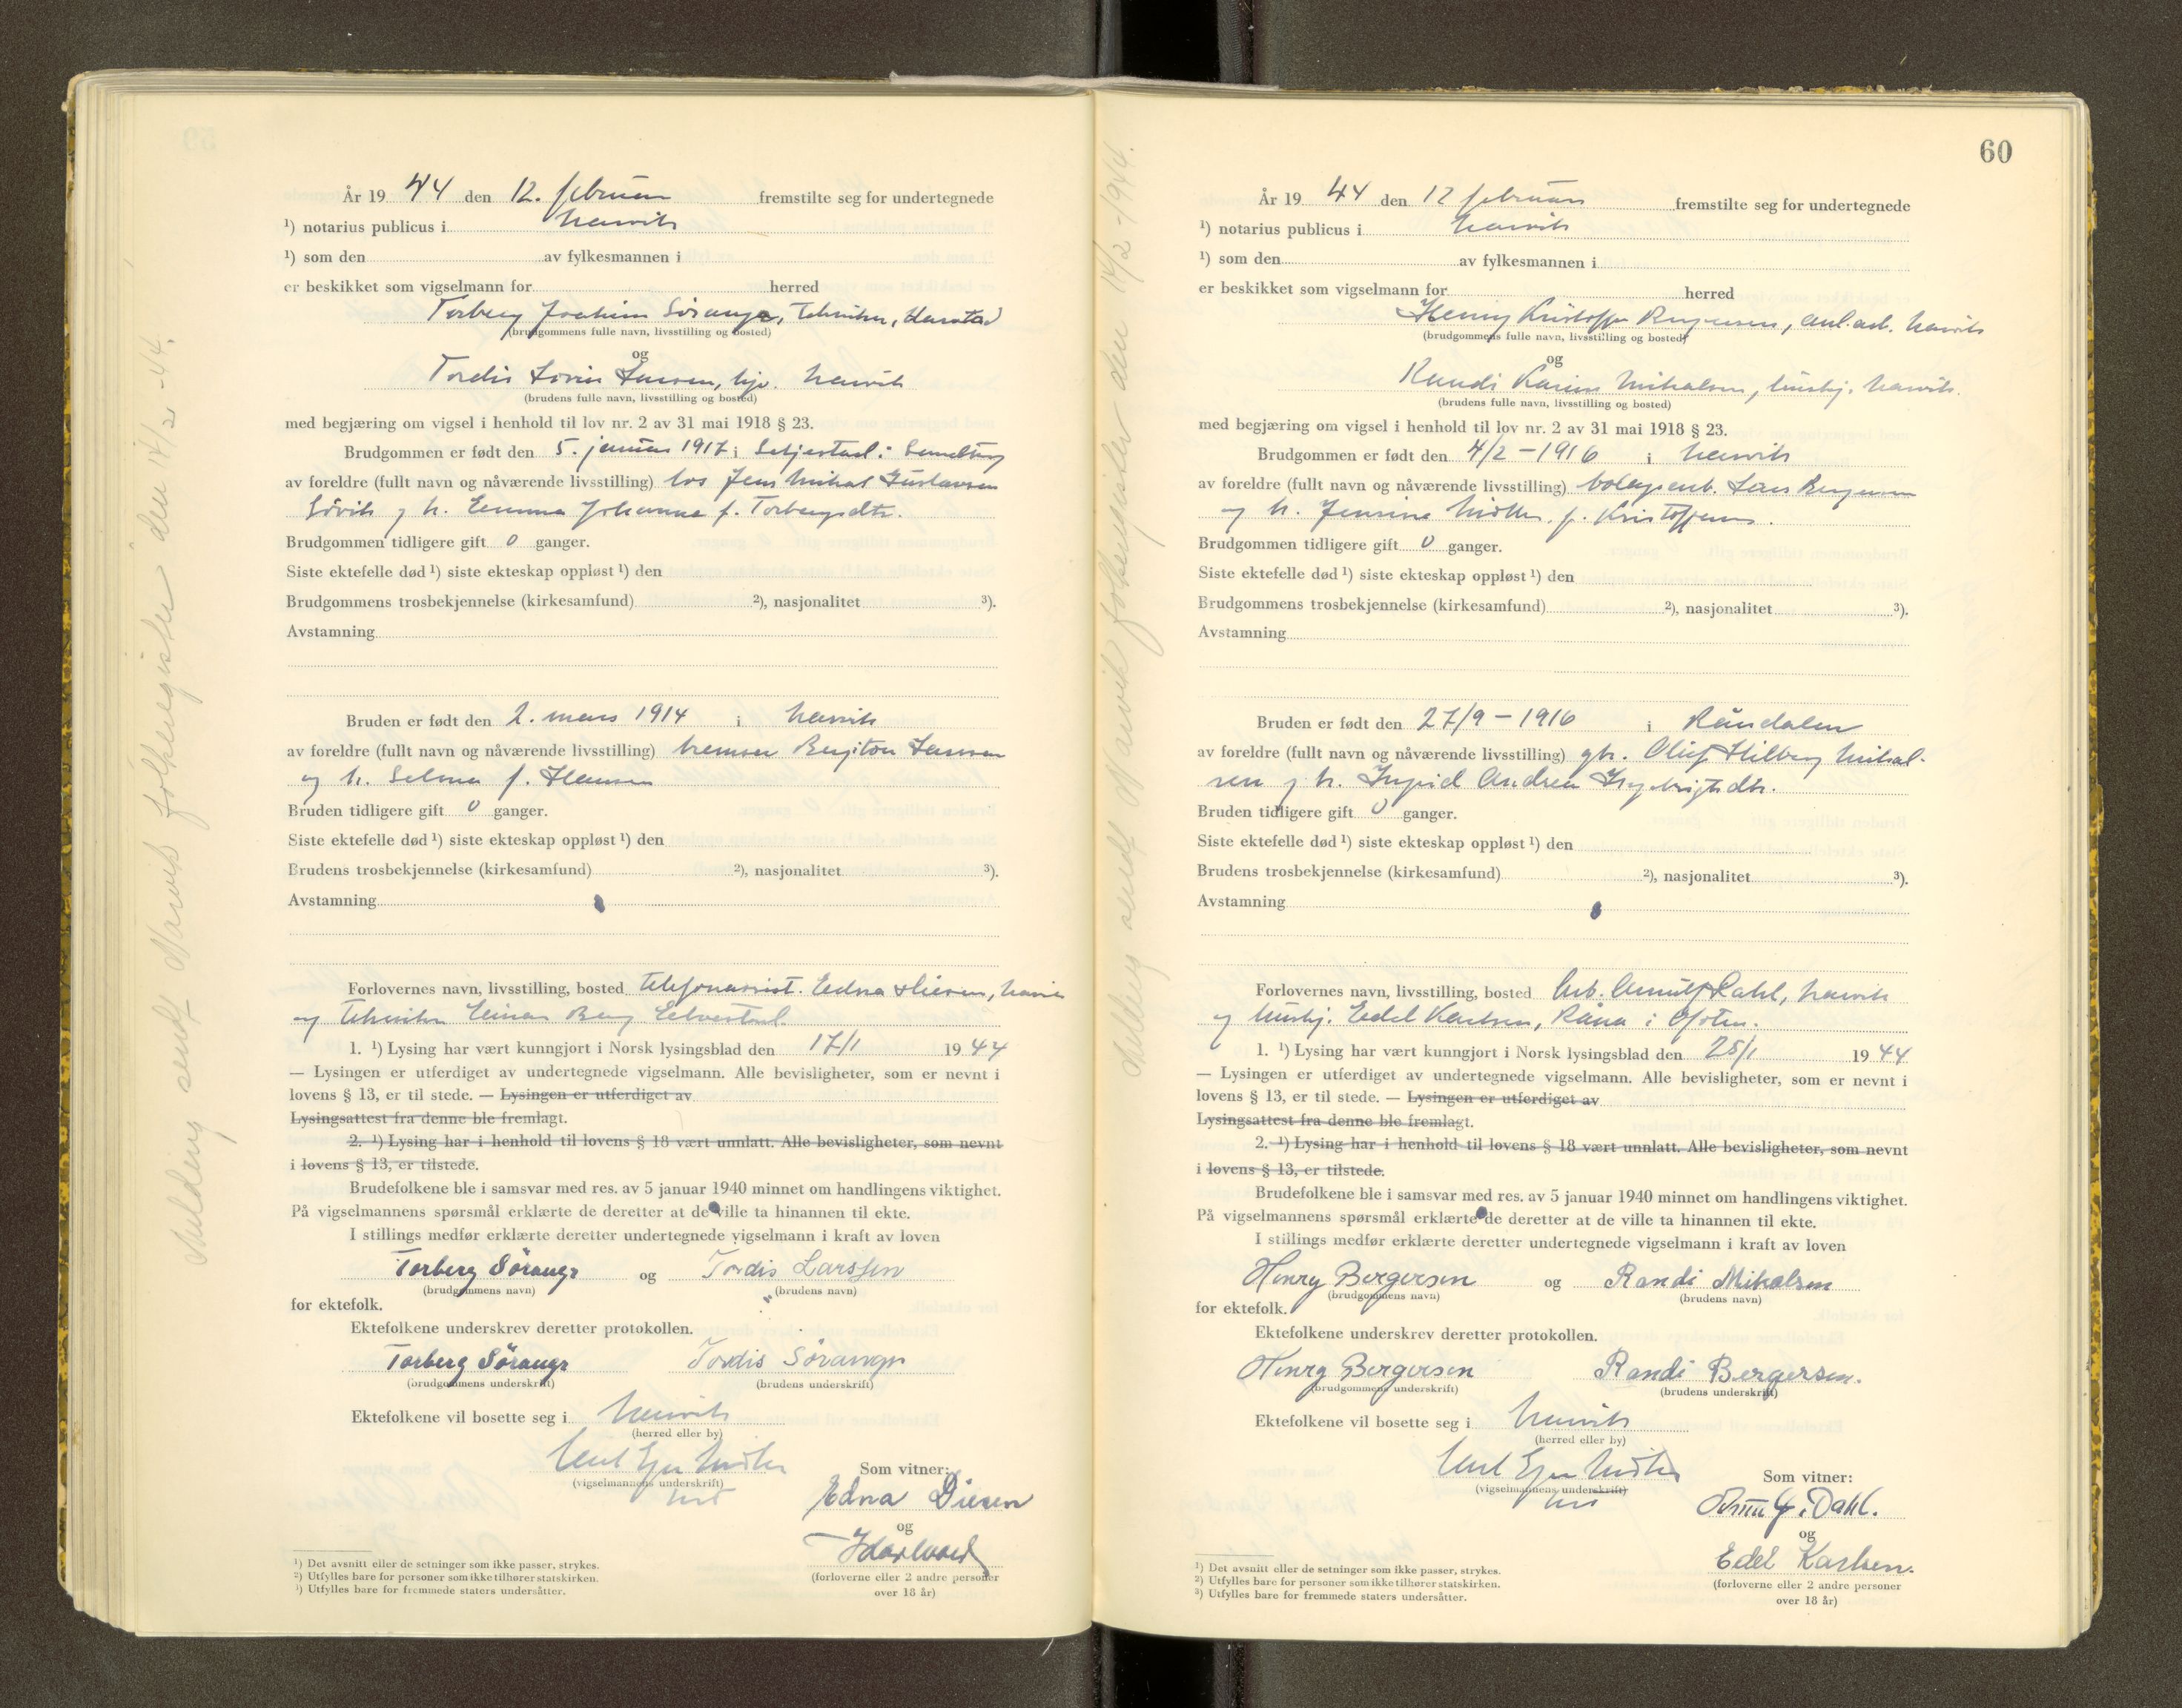 År 19 44 den 12. februar fremstilte seg for undertegnede
¹) notarius publicus i Narvik
¹) som den av fylkesmannen i
er beskikket som vigselmann for herred
Torberg Joakim Sörange, tekniker, Harstad
(brudgommens fulle navn, livsstilling og bosted)
og
Tordis Larsen, hjv. Narvik
(brudens fulle navn, livsstilling og bosted)
med begjæring om vigsel i henhold til lov nr. 2 av 31 mai 1918 § 23.
Brudgommen er født den 5. januar 1917 i
av foreldre (fullt navn og nåværende livsstilling) los Jens Mikal Gustavsen
Sövik og h. Emma Johanna f. Torbergsdtr.
Brudgommen tidligere gift 0 ganger.
Siste ektefelle død ¹) siste ekteskap oppløst ¹) den
Brudgommens trosbekjennelse (kirkesamfund) ²), nasjonalitet ³).
Avstamning
Bruden er født den 2. mars 1914 i Narvik
av foreldre (fullt navn og nåværende livsstilling) bremser Bergiton Larsen
og h. Selma f. Hansen
Bruden tidligere gift 0 ganger.
Siste ektefelle død ¹) siste ekteskap oppløst ¹) den
Brudens trosbekjennelse (kirkesamfund) ²), nasjonalitet ³).
Avstamning
Forlovernes navn, livsstilling, bosted telefonassist. Edna Diesen, Narvik
og tekniker Einar Berg
1. ¹) Lysing har vært kunngjort i Norsk lysingsblad den 17/1 19 44
— Lysingen er utferdiget av undertegnede vigselmann. Alle bevisligheter, som er nevnt i
lovens § 13, er til stede. — Lysingen er utferdiget av
Lysingsattest fra denne ble fremlagt.
2. ¹) Lysing har i henhold til lovens § 18 vært unnlatt. Alle bevisligheter, som nevnt
i lovens § 13, er tilstede.
Brudefolkene ble i samsvar med res. av 5 januar 1940 minnet om handlingens viktighet.
På vigselmannens spørsmål erklærte de deretter at de ville ta hinannen til ekte.
I stillings medfør erklærte deretter undertegnede vigselmann i kraft av loven
Torberg Sörange og Tordis Larssen
(brudgommens navn) (brudens navn)
for ektefolk.
Ektefolkene underskrev deretter protokollen.
Torberg Sörange Tordis Sørange
(brudgommens underskrift) (brudens underskrift)
Ektefolkene vil bosette seg i Narvik
(herred eller by)
(vigselmannens underskrift)
Som vitner:
Edna Diesen
og
(forloverne eller 2 andre personer
over 18 år)
¹) Det avsnitt eller de setninger som ikke passer, strykes.
²) Utfylles bare for personer som ikke tilhører statskirken.
³) Utfylles bare for fremmede staters undersåtter.
Melding sendt Narvik folkeregister den 14/2 -44.
60
År 19 44 den 12 februar fremstilte seg for undertegnede
¹) notarius publicus i Narvik
¹) som den av fylkesmannen i
er beskikket som vigselmann for herred
Henry Kristoffer Bergersen, anl.arb. Narvik
(brudgommens fulle navn, livsstilling og bosted)
og
Randi Karine Mikalsen, hushj. Narvik.
(brudens fulle navn, livsstilling og bosted)
med begjæring om vigsel i henhold til lov nr. 2 av 31 mai 1918 § 23.
Brudgommen er født den 4/2 - 1916 i Narvik
av foreldre (fullt navn og nåværende livsstilling) bolagsarb. Lars Bergersen
og h. Jensine f. Kristoffersen.
Brudgommen tidligere gift 0 ganger.
Siste ektefelle død ¹) siste ekteskap oppløst ¹) den
Brudgommens trosbekjennelse (kirkesamfund) ²), nasjonalitet ³).
Avstamning
Bruden er født den 27/9 - 1916 i Råndalen
av foreldre (fullt navn og nåværende livsstilling) gbr. Oluf Hilberg Mikal-
sen og h. Ingrid Andrea Ingebrigtsdtr.
Bruden tidligere gift 0 ganger.
Siste ektefelle død ¹) siste ekteskap oppløst ¹) den
Brudens trosbekjennelse (kirkesamfund) ²), nasjonalitet ³).
Avstamning
Forlovernes navn, livsstilling, bosted arb. Arnulf Dahl, Narvik
og hushj. Edel Karlsen, Råna i Ofoten.
1. ¹) Lysing har vært kunngjort i Norsk lysingsblad den 25/1 19 44
— Lysingen er utferdiget av undertegnede vigselmann. Alle bevisligheter, som er nevnt i
lovens § 13, er til stede. — Lysingen er utferdiget av
Lysingsattest fra denne ble fremlagt.
2. ¹) Lysing har i henhold til lovens § 18 vært unnlatt. Alle bevisligheter, som nevnt
i lovens § 13, er tilstede.
Brudefolkene ble i samsvar med res. av 5 januar 1940 minnet om handlingens viktighet.
På vigselmannens spørsmål erklærte de deretter at de ville ta hinannen til ekte.
I stillings medfør erklærte deretter undertegnede vigselmann i kraft av loven
Henry Bergersen og Randi Mikalsen
(brudgommens navn) (brudens navn)
for ektefolk.
Ektefolkene underskrev deretter protokollen.
Henry Bergersen Randi Bergersen.
(brudgommens underskrift) (brudens underskrift)
Ektefolkene vil bosette seg i Narvik
(herred eller by)
(vigselmannens underskrift)
Som vitner:
Arnulf Dahl.
og
Edel Karlsen.
(forloverne eller 2 andre personer
over 18 år)
¹) Det avsnitt eller de setninger som ikke passer, strykes.
²) Utfylles bare for personer som ikke tilhører statskirken.
³) Utfylles bare for fremmede staters undersåtter.
Melding sendt Narvik folkeregister den 14/2 -1944.